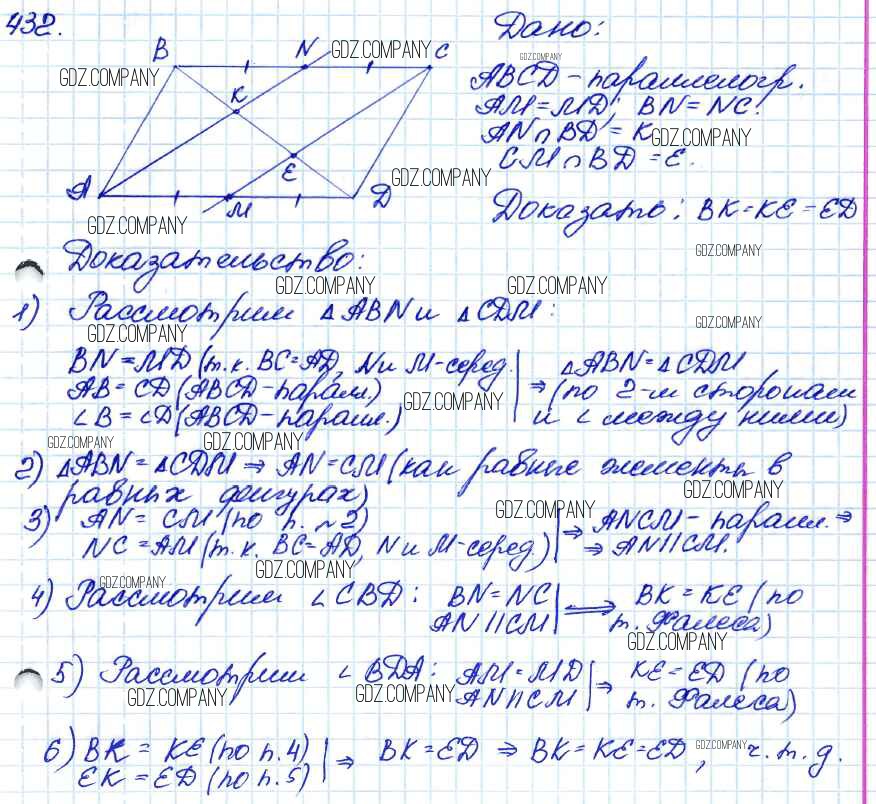 432.
Дано:
B N C
GDZ.COMPANY
GDZ.COMPANY
GDZ.COMPANY
ABCD – параллелогр.
K
AM = MD; BN = NC.
AN ∩ BD = K
GDZ.COMPANY
E
CM ∩ BD = E.
GDZ.COMPANY
A M D
GDZ.COMPANY
Доказать: BK = KE = ED
GDZ.COMPANY
Доказательство:
GDZ.COMPANY GDZ.COMPANY
1) Рассмотрим ΔABN и ΔCDM:
GDZ.COMPANY GDZ.COMPANY
BN = MD (т.к. BC = AD, N и M – серед.
AB = CD (ABCD – парал.)
∠B = ∠D (ABCD – паралл.)
⇒ ΔABN = ΔCDM
(по 2-м сторонам
и ∠ между ними)
GDZ.COMPANY
GDZ.COMPANY GDZ.COMPANY
2) ΔABN = ΔCDM ⇒ AN = CM (как равные элементы в
равных фигурах)
GDZ.COMPANY
GDZ.COMPANY
3) AN = CM (по п. ~2)
NC = AM (т.к. BC = AD, N и M – серед)
⇒ ANCM – парал. ⇒
⇒ AN || CM.
GDZ.COMPANY
GDZ.COMPANY
4) Рассмотрим ∠CBD: BN = NC
AN || CM
⟹ BK = KE (по
т. Фалеса)
GDZ.COMPANY
5) Рассмотрим ∠BDA: AM = MD
AN || CM
⇒ KE = ED (по
т. Фалеса)
GDZ.COMPANY GDZ.COMPANY
6) BK = KE (по п. 4)
EK = ED (по п. 5)
⇒ BK = ED ⇒ BK = KE = ED, ч.т.д.
GDZ.COMPANY